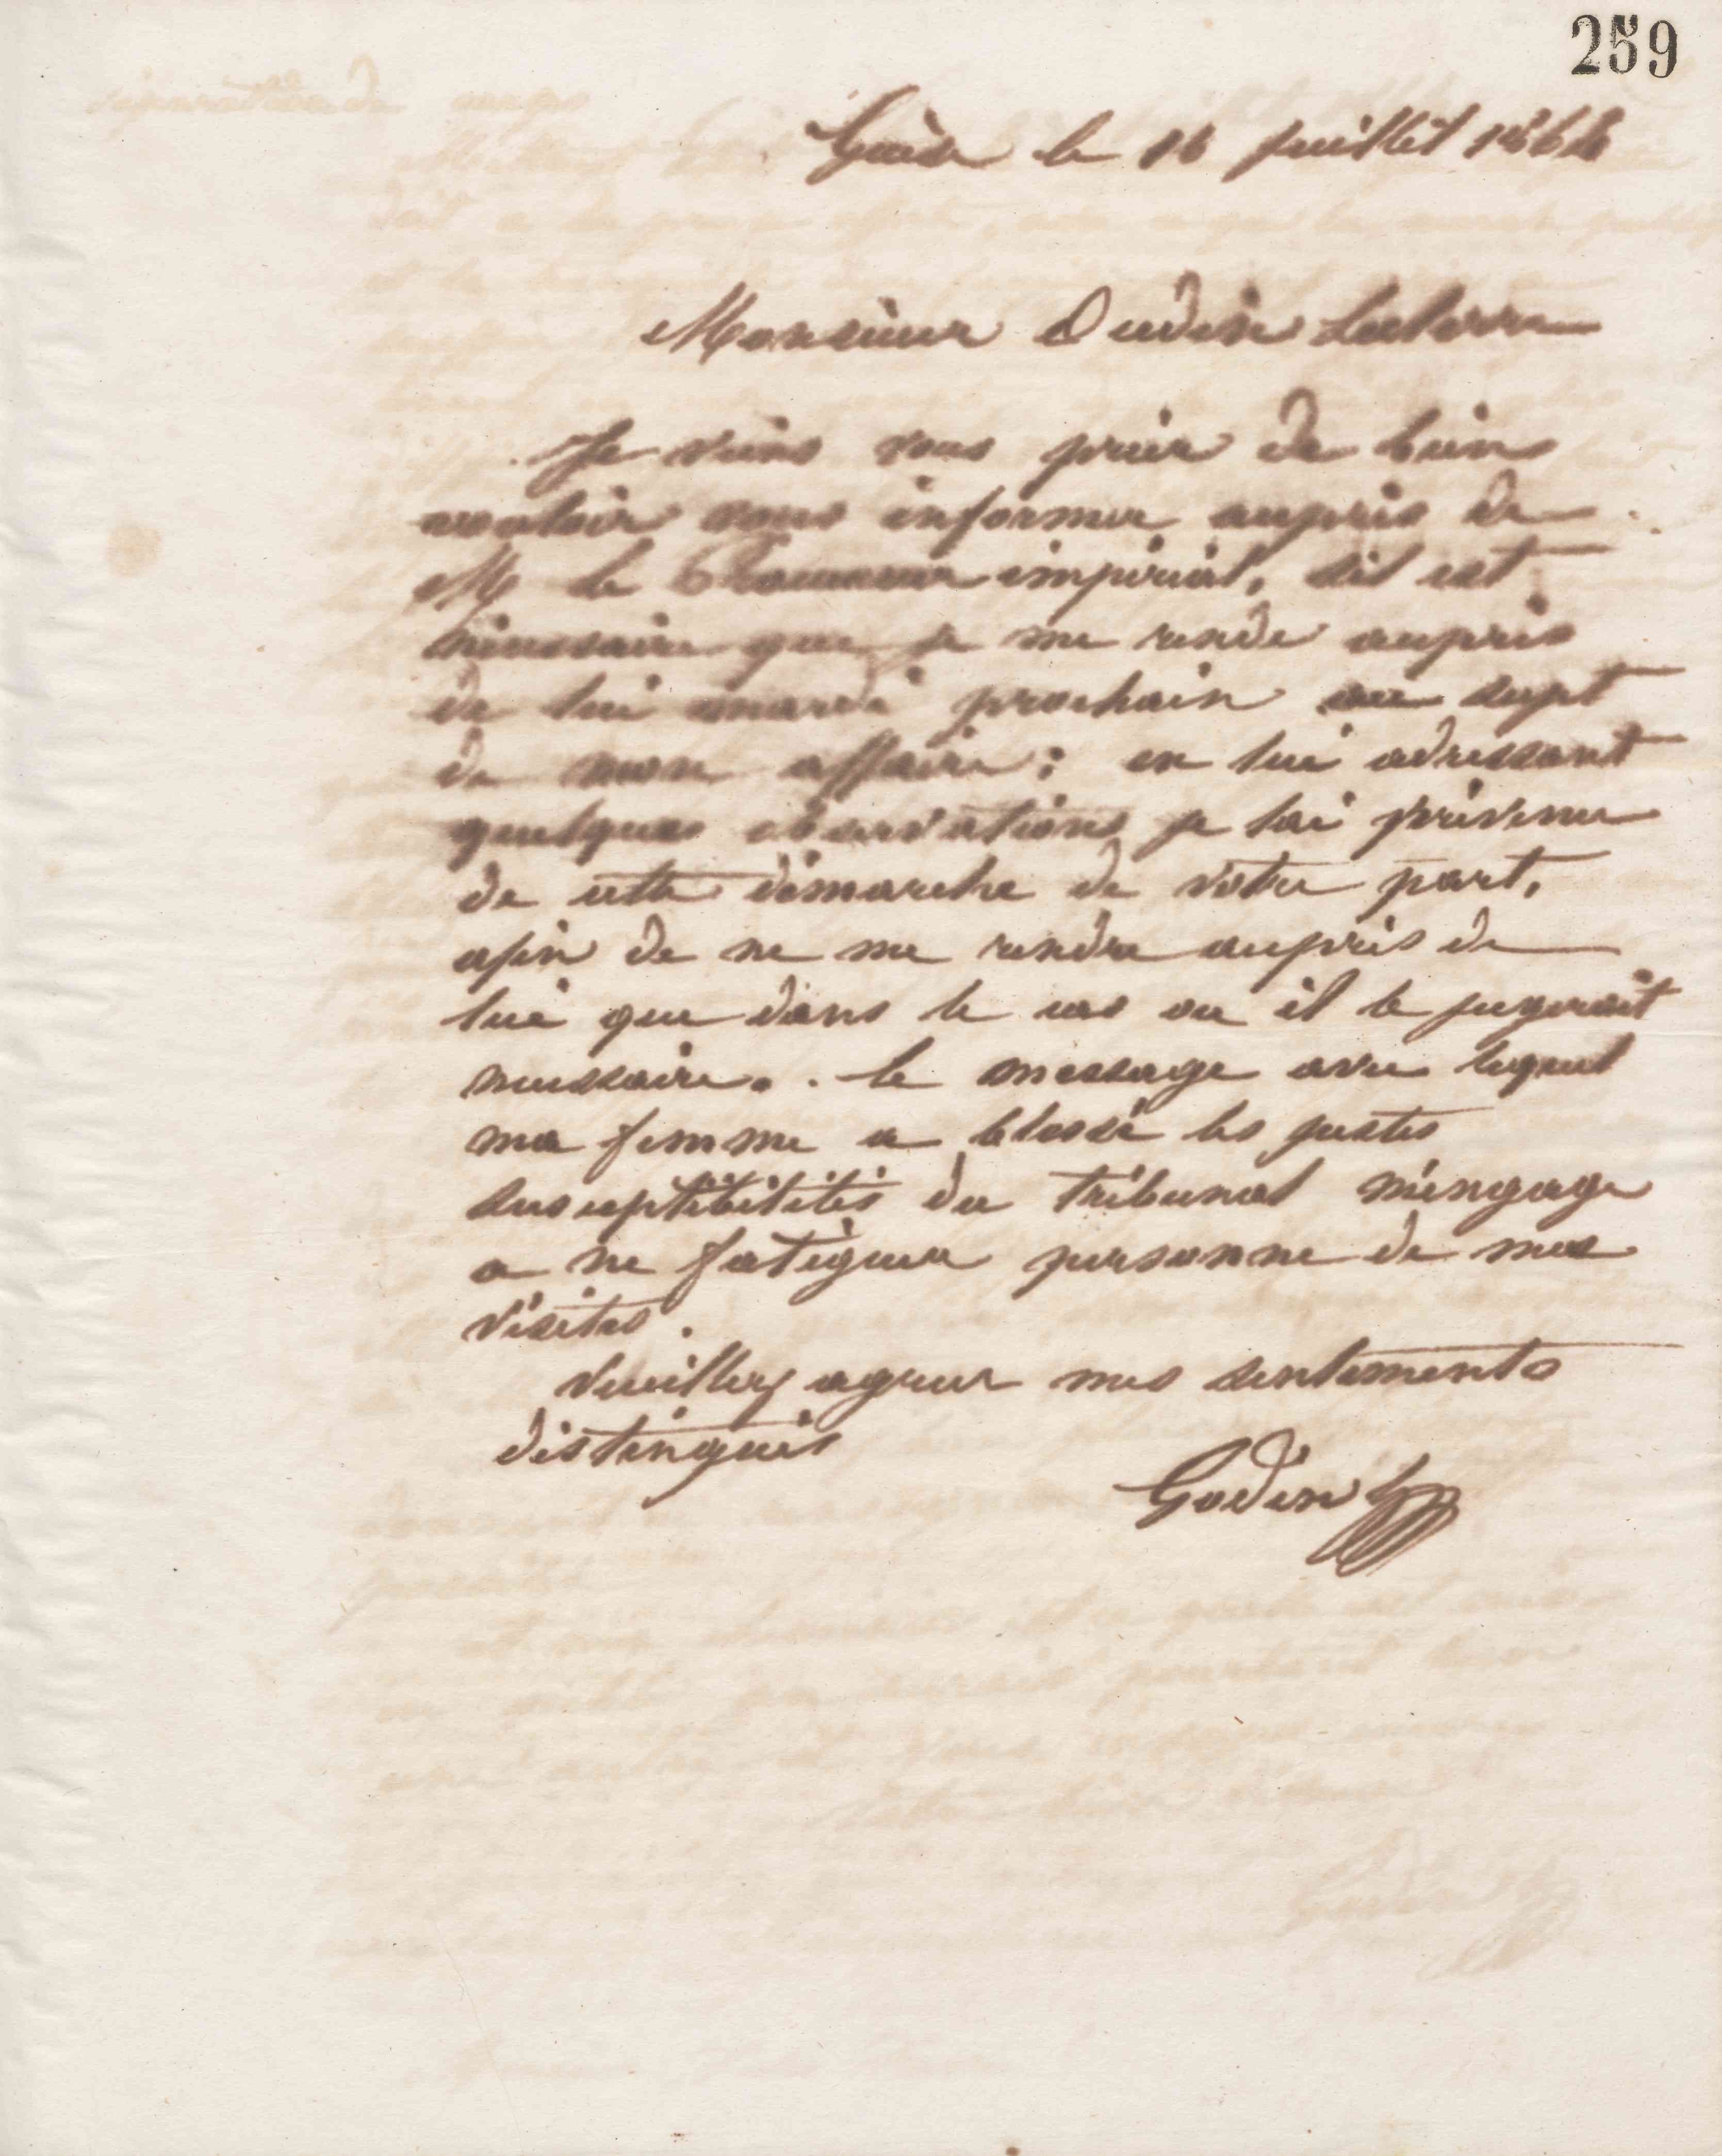 259
Guise le 16 juillet 1864
Monsieur Oudin Leclerre
Je viens vous prier de bien
vouloir vous informer auprès de
M le Procureur impérial, s'il est
nécessaire que je me rende auprès
de lui mardi prochain au sujet
de mon affaire ; en lui adressant
quelques observations je l'ai prévenu
de cette démarche de votre part,
afin de ne me rendre auprès de
lui que dans le cas ou il le jugerait
necessaire. . le message avec lequel
ma femme a blessé les justes
susceptibilités du tribunal m'engage
a ne fatiguer personne de mes
visites.
Veuillez agreer mes sentiments
distingués
Godin